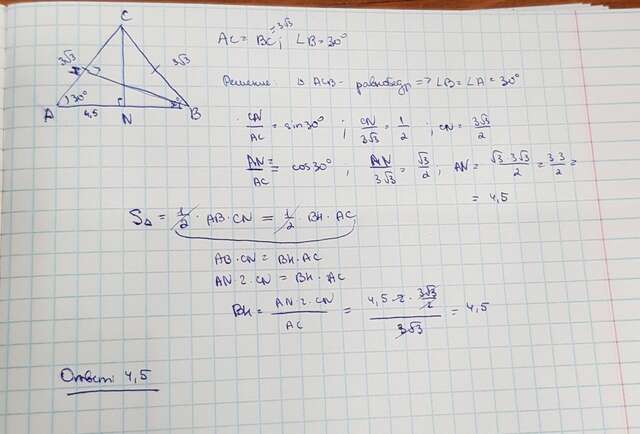 C
3√3
3√3
A
30°
4,5
N
B
AC = BC = 3√3; ∠B = 30°
Решение. Δ ACB - равнобедр => ∠B = ∠A = 30°
CN/AC = sin 30° ; CN/3√3 = 1/2 ; CN = 3√3/2
AN/AC = cos 30° ; AN/3√3 = √3/2 ; AN = √3·3√3/2 = 3·3/2 =
= 4,5
SΔ = 1/2 · AB · CN = 1/2 · BH · AC
AB · CN = BH · AC
AN · 2 · CN = BH · AC
BH = AN · 2 · CN/AC = 4,5 · 2 · 3√3/2/3√3 = 4,5
Ответ: 4,5